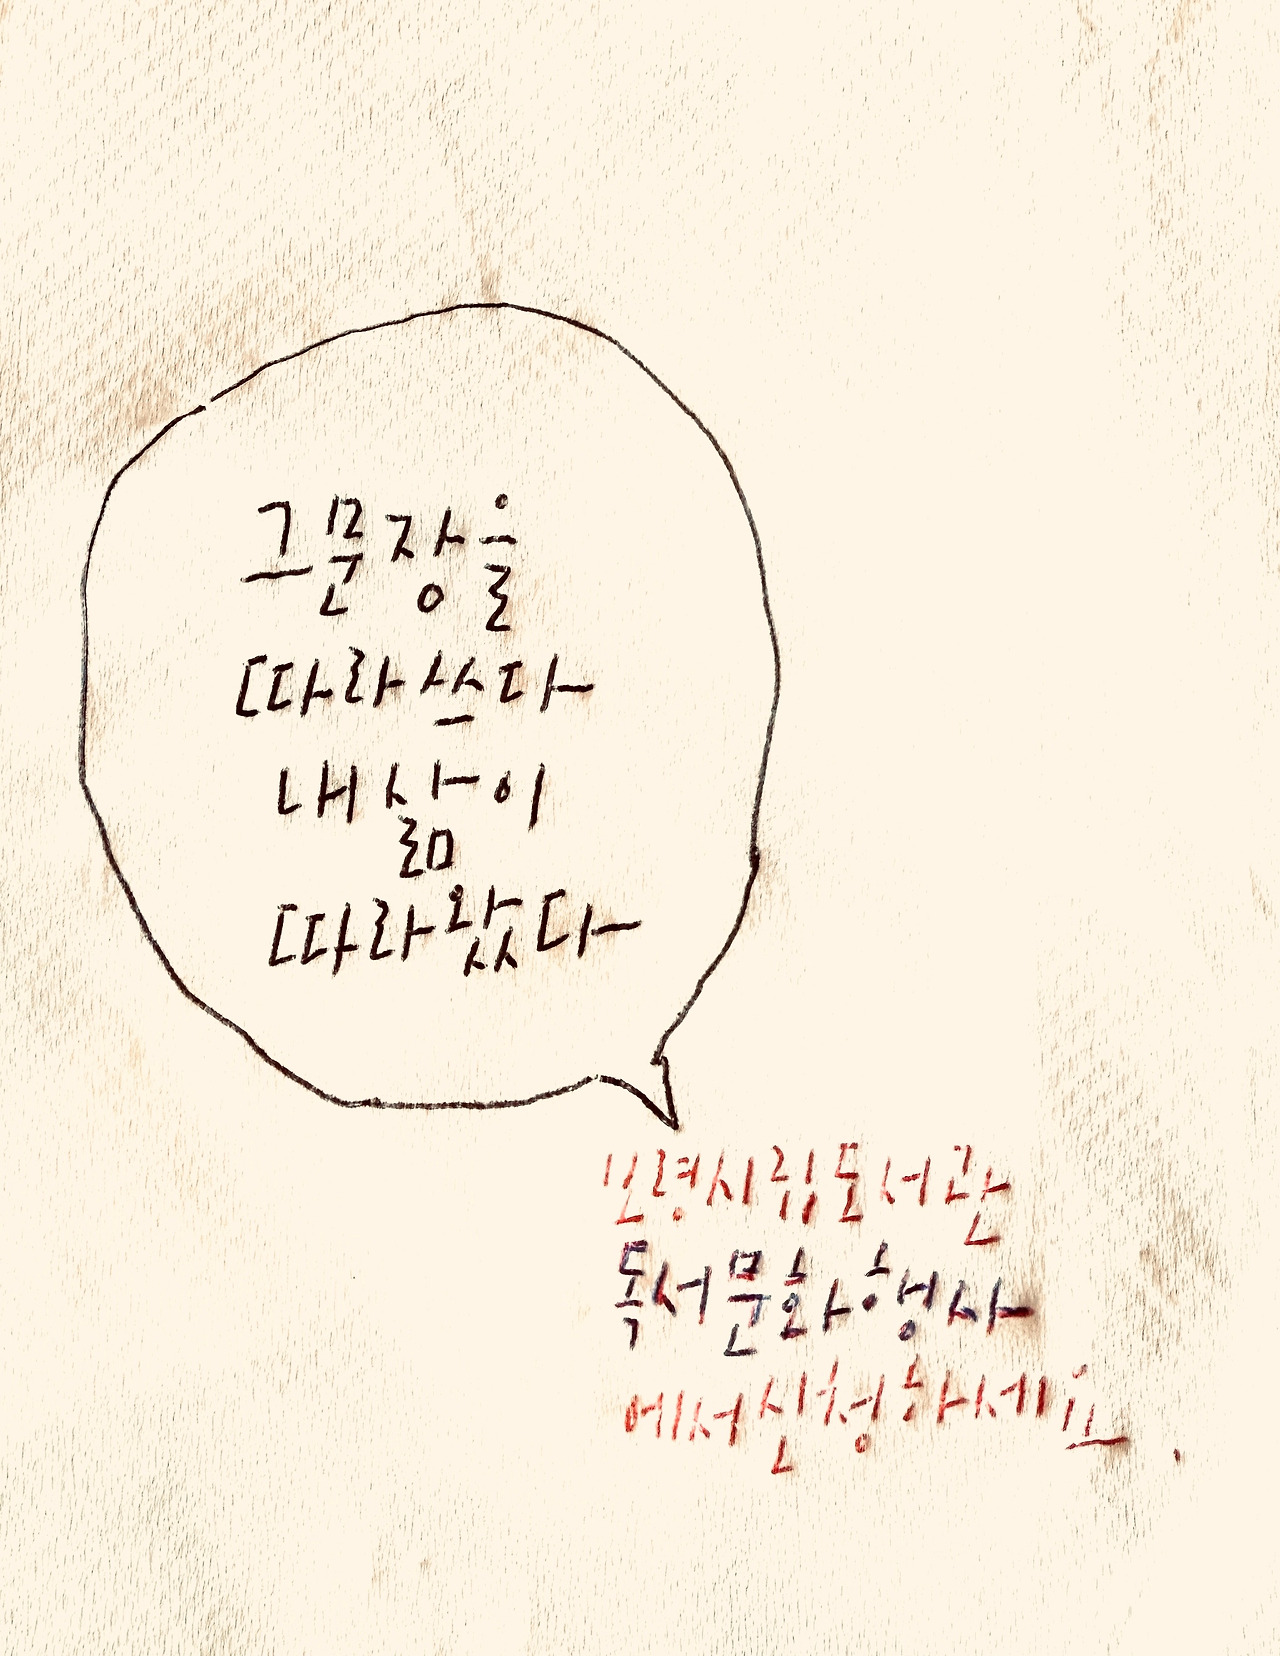 그문장을
따라쓰다
내삶이
따라왔다
보령시립도서관
독서문화행사
에서신청하세요.